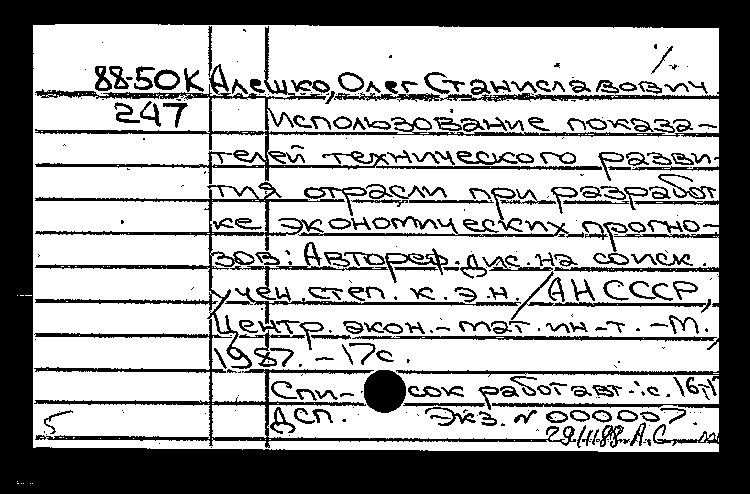 88-50К Алешко, Олег Станиславович
247 Использование показа-
телей технического разви-
тия отрасли при разработ
ке экономических прогно-
зов: Автореф. дис. на соиск.
учен. степ. к. э. н. / АН СССР,
Центр. экон.-мат. ин-т. - М.
1987. - 17с.
Спи- сок работ авт.: с. 16-17
5 ДСП. Экз. N 000007.
29.11.88. А.С.